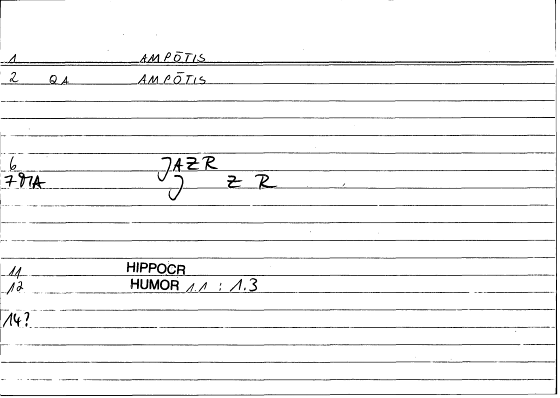 1 AMPŌTIS
2 QA AMPŌTIS
6 JAZR
7 J Z R
11 HIPPOCR
12 HUMOR 1.1 : 1.3
14?